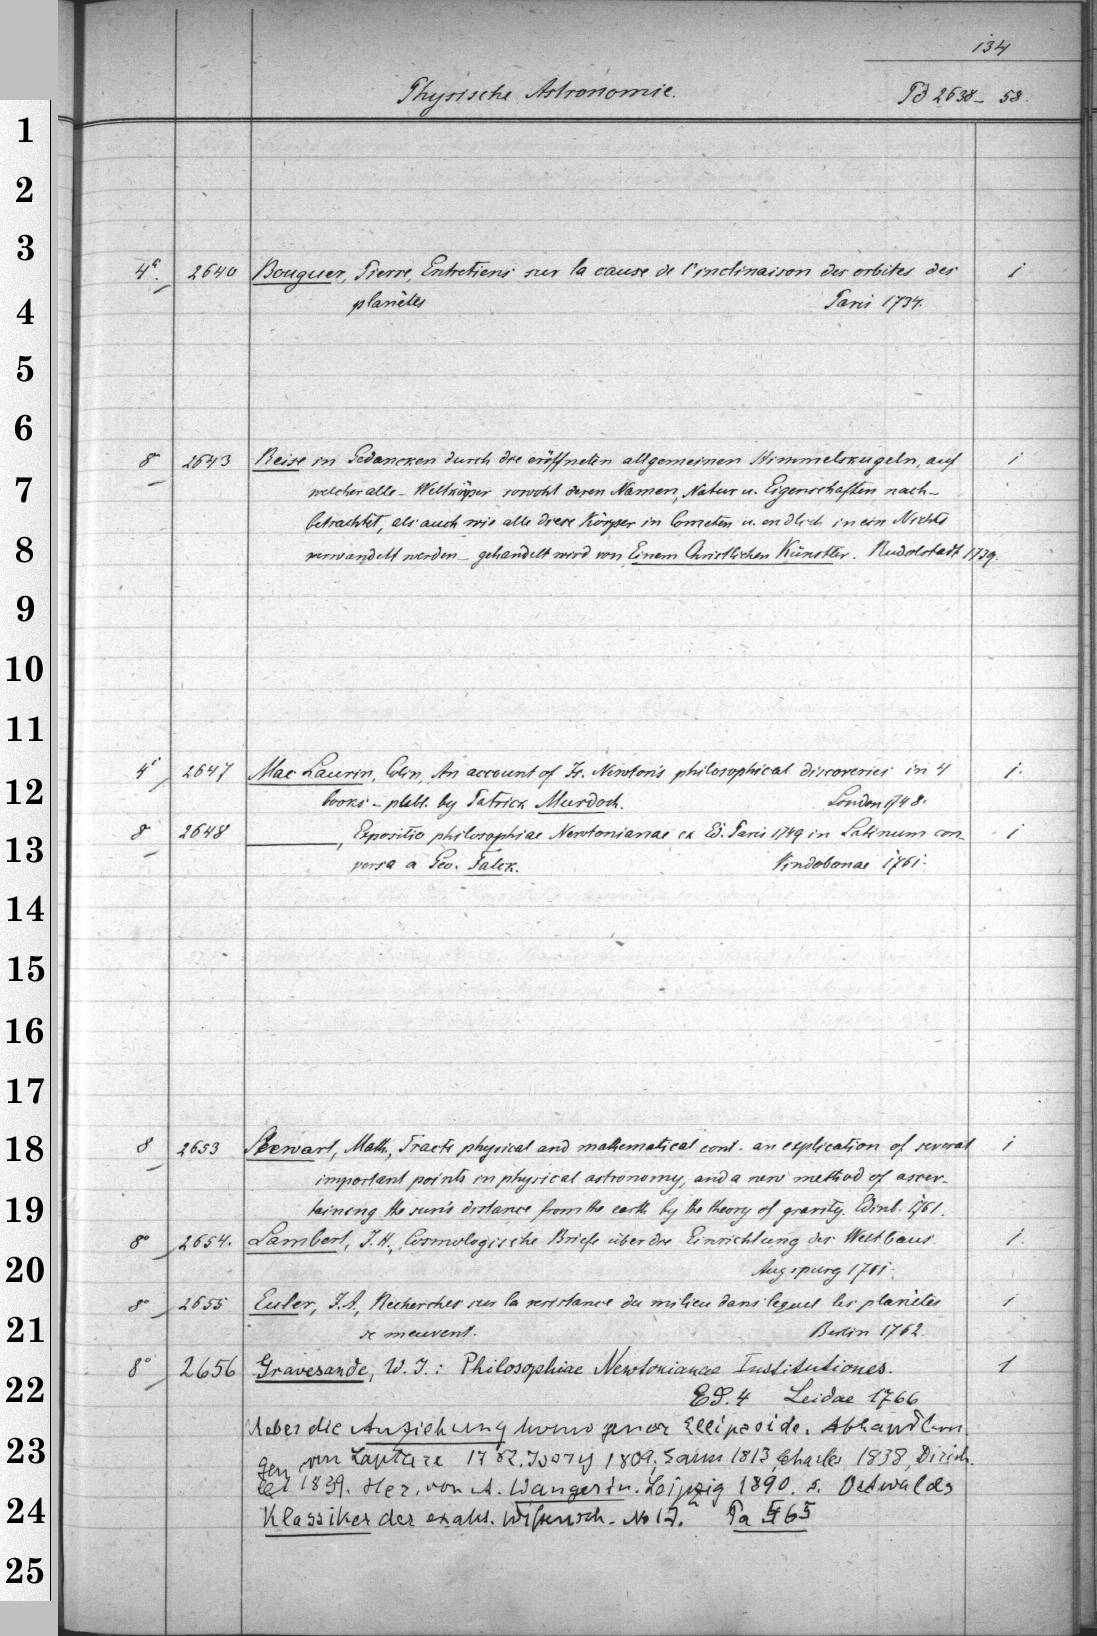 134
Physische Astronomie. Pd 2638 – 58.
1
2
3
4° 2640 Bouguer, Pierre, Entretiens sur la cause de l'inclinaison des orbites des 1
planètes Paris 1734.
4
5
6
8° 2643 Reise in Gedancken durch die eröffneten allgemeinen Himmelskugeln, auf 1
7
welcher alle – Weltkörper sowohl deren Namen, Natur u. Eigenschaften nach –
betrachtet, als auch wie alle diese Körper in Cometen u. endlich in ein Nichts
8
verwandelt werden – gehandelt wird von Einem Christlichen Künstler. Rudolstadt 1739.
9
10
11
4° 2647 Mac Laurin, Colin, An account of Is. Newton's philosophical discoveries in 4 1.
12
books – publ. by Patrick Murdoch. London 1748.
8° 2648 ———, Expositio philosophiae Newtonianae ex Ed. Paris 1749 in Latinum con- 1
13
versa a Geo. Falck. Vindobonae 1761.
14
15
16
17
18
8° 2653 Stewart, Math., Tracts physical and mathematical cont. an explication of several 1
important points in physical astronomy, and a new method of ascer-
19
taining the sun's distance from the earth by the theory of gravity. Edinb. 1761.
8° 2654. Lambert, J. H., Cosmologische Briefe über die Einrichtung des Weltbaus. 1.
20
Augspurg 1761.
8° 2655 Euler, J. A., Recherches sur la resistance du milieu dans lequel les planètes 1
21
se meuvent. Berlin 1762.
8° 2656 Gravesande, W. J.: Philosophiae Newtonianae Institutiones. 1
22
Ed. 4 Leidae 1766
Ueber die Anziehung homogener Ellipsoide. Abhandlun-
23
gen von Laplace 1782, Ivory 1809, Gauss 1813, Chasles 1838, Dirich-
let 1839. Her. von A. Wangerin. Leipzig 1890. s. Ostwalds
24
Klassiker der exakt. Wissensch. No 19. Pa 565
25